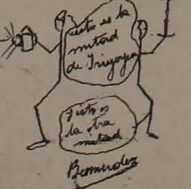 esto es la
mitad
de Irigoyen
y esto es
la otra
mitad
Bermúdez